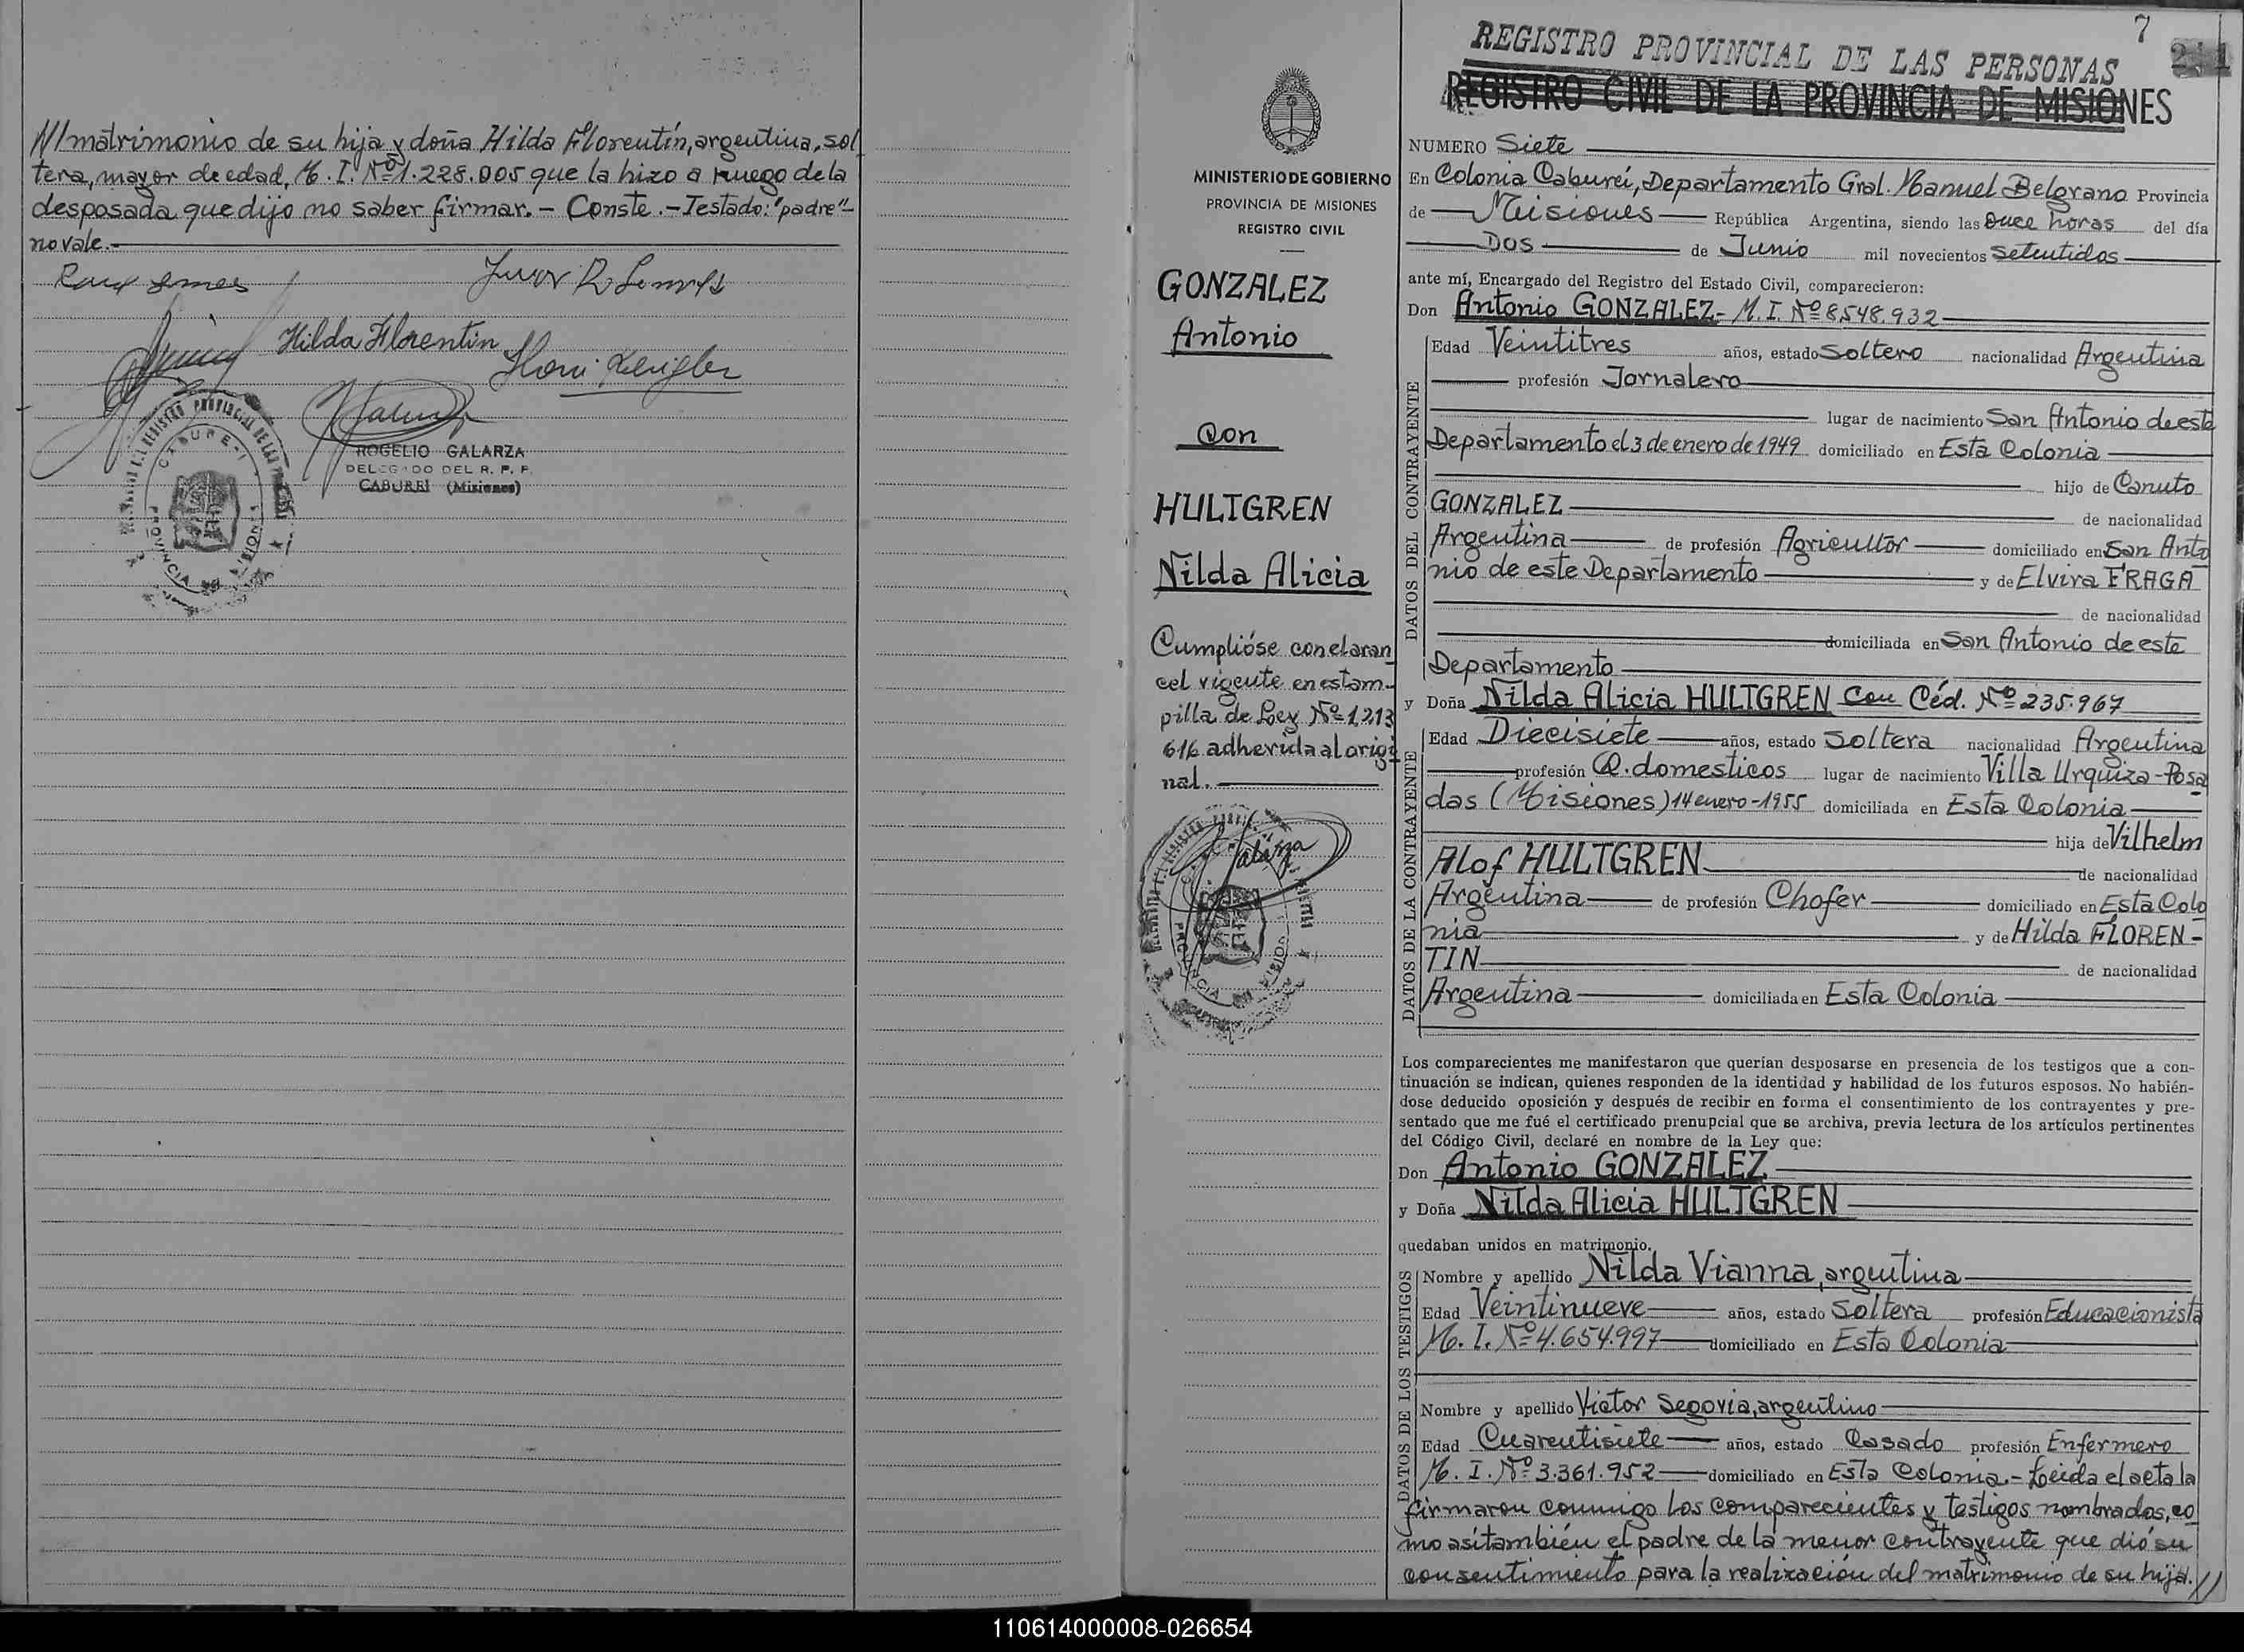 //matrimonio de su hija y doña Hilda Florentín, argentina, sol
tera, mayor de edad, M. I. Nº 1.228.005 que la hizo a ruego de la
desposada que dijo no saber firmar.- Conste.- Testado: "padre"-
no vale.-
Hilda Florentin
ROGELIO GALARZA
DELEGADO DEL R. P. P.
CABUREI (Misiones)
CABURE-I
PROVINCIA DE MISIONES
MINISTERIO DE GOBIERNO
PROVINCIA DE MISIONES
REGISTRO CIVIL
GONZALEZ
Antonio
Con
HULTGREN
Nilda Alicia
Cumplióse con el aran
cel vigente en estam-
pilla de Ley Nº 1.213
616 adherida al origi
nal.-
7
211
REGISTRO PROVINCIAL DE LAS PERSONAS
REGISTRO CIVIL DE LA PROVINCIA DE MISIONES
NUMERO Siete
En Colonia Caburei, Departamento Gral. Manuel Belgrano Provincia
de Misiones República Argentina, siendo las once horas del día
Dos de Junio mil novecientos setentidos
ante mí, Encargado del Registro del Estado Civil, comparecieron:
Don Antonio GONZALEZ- M. I. Nº 8.548.932
DATOS DEL CONTRAYENTE
Edad Veintitres años, estado Soltero nacionalidad Argentina
profesión Jornalero
lugar de nacimiento San Antonio de este
Departamento el 3 de enero de 1949 domiciliado en Esta Colonia
hijo de Canuto
GONZALEZ de nacionalidad
Argentina de profesión Agricultor domiciliado en San Anto
nio de este Departamento y de Elvira FRAGA
de nacionalidad
domiciliada en San Antonio de este
Departamento
y Doña Nilda Alicia HULTGREN con Céd. Nº 235.967
DATOS DE LA CONTRAYENTE
Edad Diecisiete años, estado Soltera nacionalidad Argentina
profesión Q. domesticos lugar de nacimiento Villa Urquiza-Posa
das (Misiones) 14 enero-1955 domiciliada en Esta Colonia
hija de Vilhelm
Alof HULTGREN de nacionalidad
Argentina de profesión Chofer domiciliado en Esta Colo
nia y de Hilda FLOREN-
TIN de nacionalidad
Argentina domiciliada en Esta Colonia
Los comparecientes me manifestaron que querían desposarse en presencia de los testigos que a con-
tinuación se indican, quienes responden de la identidad y habilidad de los futuros esposos. No habién-
dose deducido oposición y después de recibir en forma el consentimiento de los contrayentes y pre-
sentado que me fué el certificado prenupcial que se archiva, previa lectura de los artículos pertinentes
del Código Civil, declaré en nombre de la Ley que:
Don Antonio GONZALEZ
y Doña Nilda Alicia HULTGREN
quedaban unidos en matrimonio.
DATOS DE LOS TESTIGOS
Nombre y apellido Nilda Vianna, argentina
Edad Veintinueve años, estado Soltera profesión Educacionista
M. I. Nº 4.654.997 domiciliado en Esta Colonia
Nombre y apellido Victor Segovia, argentino
Edad Cuarentisiete años, estado Casado profesión Enfermero
M. I. Nº 3.361.952 domiciliado en Esta Colonia.- Leída el acta la
firmaron conmigo los comparecientes y testigos nombrados, co
mo asítambién el padre de la menor contrayente que dió su
consentimiento para la realización del matrimonio de su hija.//
110614000008-026654